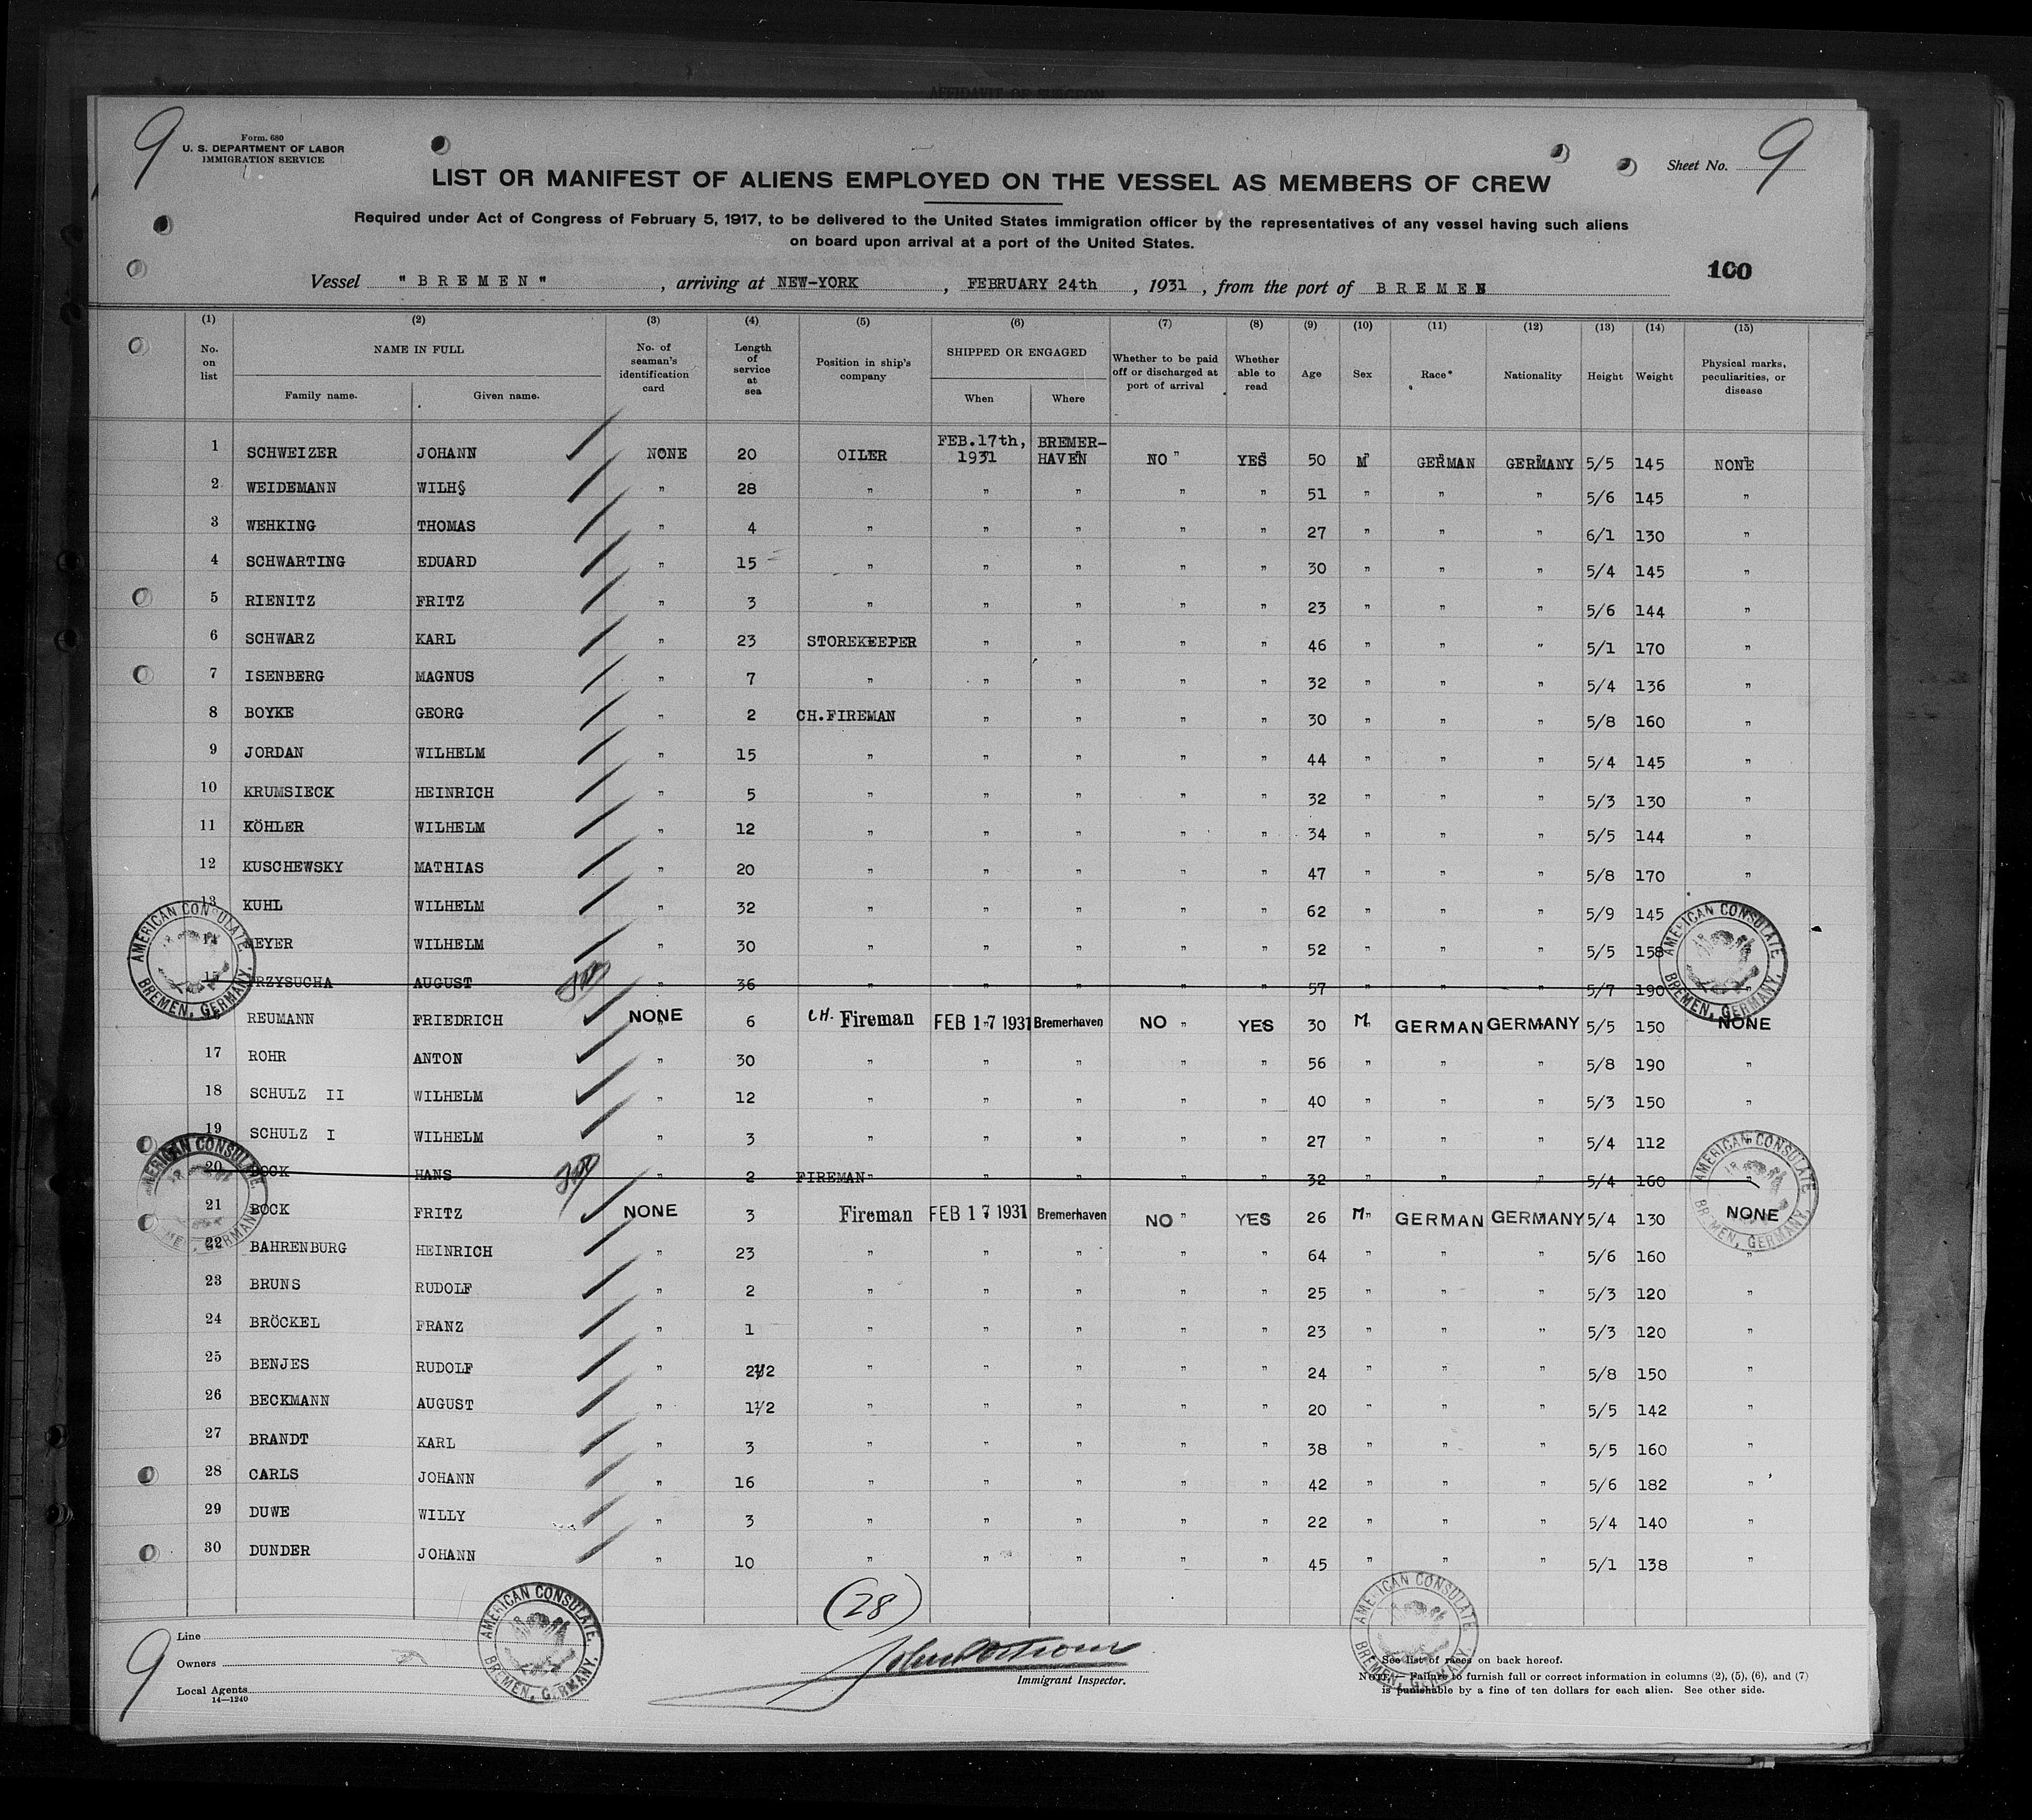 AFFIDAVIT OF SURGEON
9
Form. 680
U. S. DEPARTMENT OF LABOR
IMMIGRATION SERVICE
Sheet No. 9
LIST OR MANIFEST OF ALIENS EMPLOYED ON THE VESSEL AS MEMBERS OF CREW
Required under Act of Congress of February 5, 1917, to be delivered to the United States immigration officer by the representatives of any vessel having such aliens
on board upon arrival at a port of the United States.
100
Vessel "BREMEN", arriving at NEW-YORK, FEBRUARY 24th, 1931, from the port of BREMEN
(1) (2) (3) (4) (5) (6) (7) (8) (9) (10) (11) (12) (13) (14) (15)
No. on list | NAME IN FULL Family name. Given name. | No. of seaman's identification card | Length of service at sea | Position in ship's company | SHIPPED OR ENGAGED When Where | Whether to be paid off or discharged at port of arrival | Whether able to read | Age | Sex | Race* | Nationality | Height | Weight | Physical marks, peculiarities, or disease
1 SCHWEIZER JOHANN NONE 20 OILER FEB.17th, 1931 BREMER-HAVEN NO " YES 50 M GERMAN GERMANY 5/5 145 NONE
2 WEIDEMANN WILH§ " 28 " " " " " 51 " " " 5/6 145 "
3 WEHKING THOMAS " 4 " " " " " 27 " " " 6/1 130 "
4 SCHWARTING EDUARD " 15 " " " " " 30 " " " 5/4 145 "
5 RIENITZ FRITZ " 3 " " " " " 23 " " " 5/6 144 "
6 SCHWARZ KARL " 23 STOREKEEPER " " " " 46 " " " 5/1 170 "
7 ISENBERG MAGNUS " 7 " " " " " 32 " " " 5/4 136 "
8 BOYKE GEORG " 2 CH.FIREMAN " " " " 30 " " " 5/8 160 "
9 JORDAN WILHELM " 15 " " " " " 44 " " " 5/4 145 "
10 KRUMSIECK HEINRICH " 5 " " " " " 32 " " " 5/3 130 "
11 KÖHLER WILHELM " 12 " " " " " 34 " " " 5/5 144 "
12 KUSCHEWSKY MATHIAS " 20 " " " " " 47 " " " 5/8 170 "
13 KUHL WILHELM " 32 " " " " " 62 " " " 5/9 145
14 MEYER WILHELM " 30 " " " " " 52 " " " 5/5 158
15 PRZYSUCHA AUGUST " 36 " " " " " 57 " " " 5/7 190 "
REUMANN FRIEDRICH NONE 6 CH. Fireman FEB 17 1931 Bremerhaven NO " YES 30 M GERMAN GERMANY 5/5 150 NONE
17 ROHR ANTON " 30 " " " " " 56 " " " 5/8 190 "
18 SCHULZ II WILHELM " 12 " " " " " 40 " " " 5/3 150 "
19 SCHULZ I WILHELM " 3 " " " " " 27 " " " 5/4 112 "
20 BOCK HANS " 2 FIREMAN " " " " " 32 " " " 5/4 160 "
21 BOCK FRITZ NONE 3 Fireman FEB 17 1931 Bremerhaven NO " YES 26 M" GERMAN GERMANY 5/4 130 NONE
22 BAHRENBURG HEINRICH " 23 " " " " " 64 " " " 5/6 160 "
23 BRUNS RUDOLF " 2 " " " " " 25 " " " 5/3 120 "
24 BRÖCKEL FRANZ " 1 " " " " " 23 " " " 5/3 120 "
25 BENJES RUDOLF " 2 1/2 " " " " " 24 " " " 5/8 150 "
26 BECKMANN AUGUST " 1 1/2 " " " " " 20 " " " 5/5 142 "
27 BRANDT KARL " 3 " " " " " 38 " " " 5/5 160 "
28 CARLS JOHANN " 16 " " " " " 42 " " " 5/6 182 "
29 DUWE WILLY " 3 " " " " " 22 " " " 5/4 140 "
30 DUNDER JOHANN " 10 " " " " " 45 " " " 5/1 138 "
AMERICAN CONSULATE. BREMEN, GERMANY.
AMERICAN CONSULATE. BREMEN, GERMANY.
AMERICAN CONSULATE BREMEN, GERMANY
AMERICAN CONSULATE BREMEN, GERMANY.
AMERICAN CONSULATE. BREMEN, GERMANY.
AMERICAN CONSULATE BREMEN, GERMANY.
(28)
9
Line
Owners
Local Agents
14—1240
Immigrant Inspector.
* See list of races on back hereof.
NOTE.—Failure to furnish full or correct information in columns (2), (5), (6), and (7)
is punishable by a fine of ten dollars for each alien. See other side.